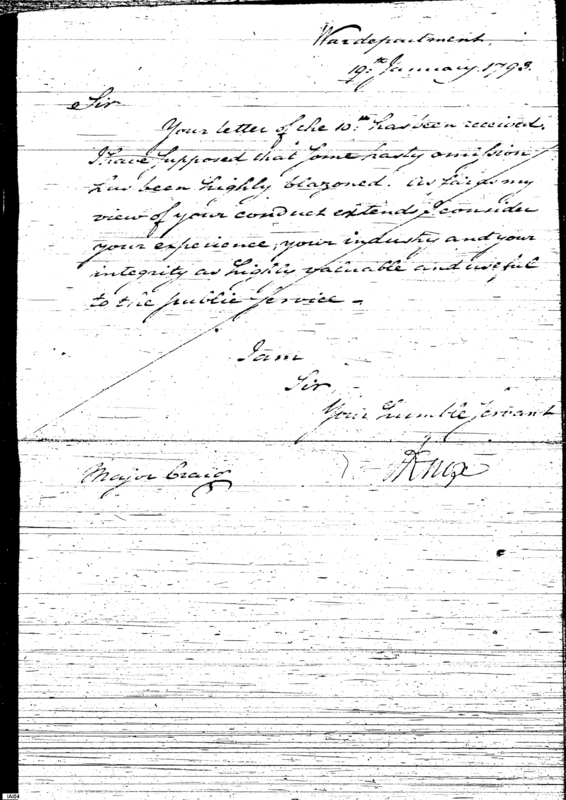 War department,
19th January 1793.
Sir
Your letter of the 10th has been received.
I have supposed that some hasty omission
has been highly blazoned. As far as my
view of your conduct extends I consider
your experience, your industry and your
integrity as highly valuable and useful
to the public service —
I am
Sir
Your humble servant
HKnox
Major Craig